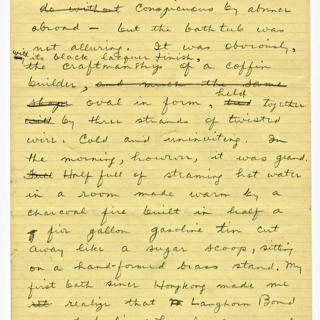 do without conspicuous by absence
abroad — but the bath tub was
not alluring. It was obviously,
with its black lacquer finish,
the craftmanship of a coffin
builder, and much the same
shape oval in form, held together
by three strands of twisted
wire. Cold and uninviting. In
the morning, however, it was grand.
Half full of steaming hot water
in a room made warm by a
charcoal fire built in half a
five gallon gasoline tin cut
away like a sugar scoop, sitting
on a hand-formed brass stand. My
first bath since Hongkong made me
realize that Langhorn Bond